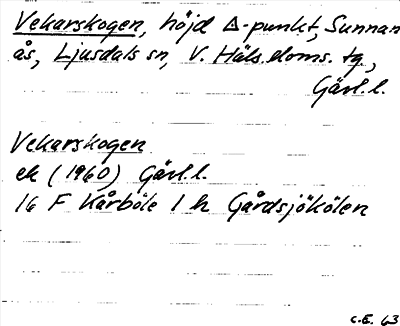 Vekarskogen, höjd Δ-punkt, Sunnan
ås, Ljusdals sn, V. Häls. doms. tg,
Gävl. l.
Vekarskogen
ek (1960) Gävl. l.
16 F Kårböle 1 h Gårdsjökölen
C.E. 63